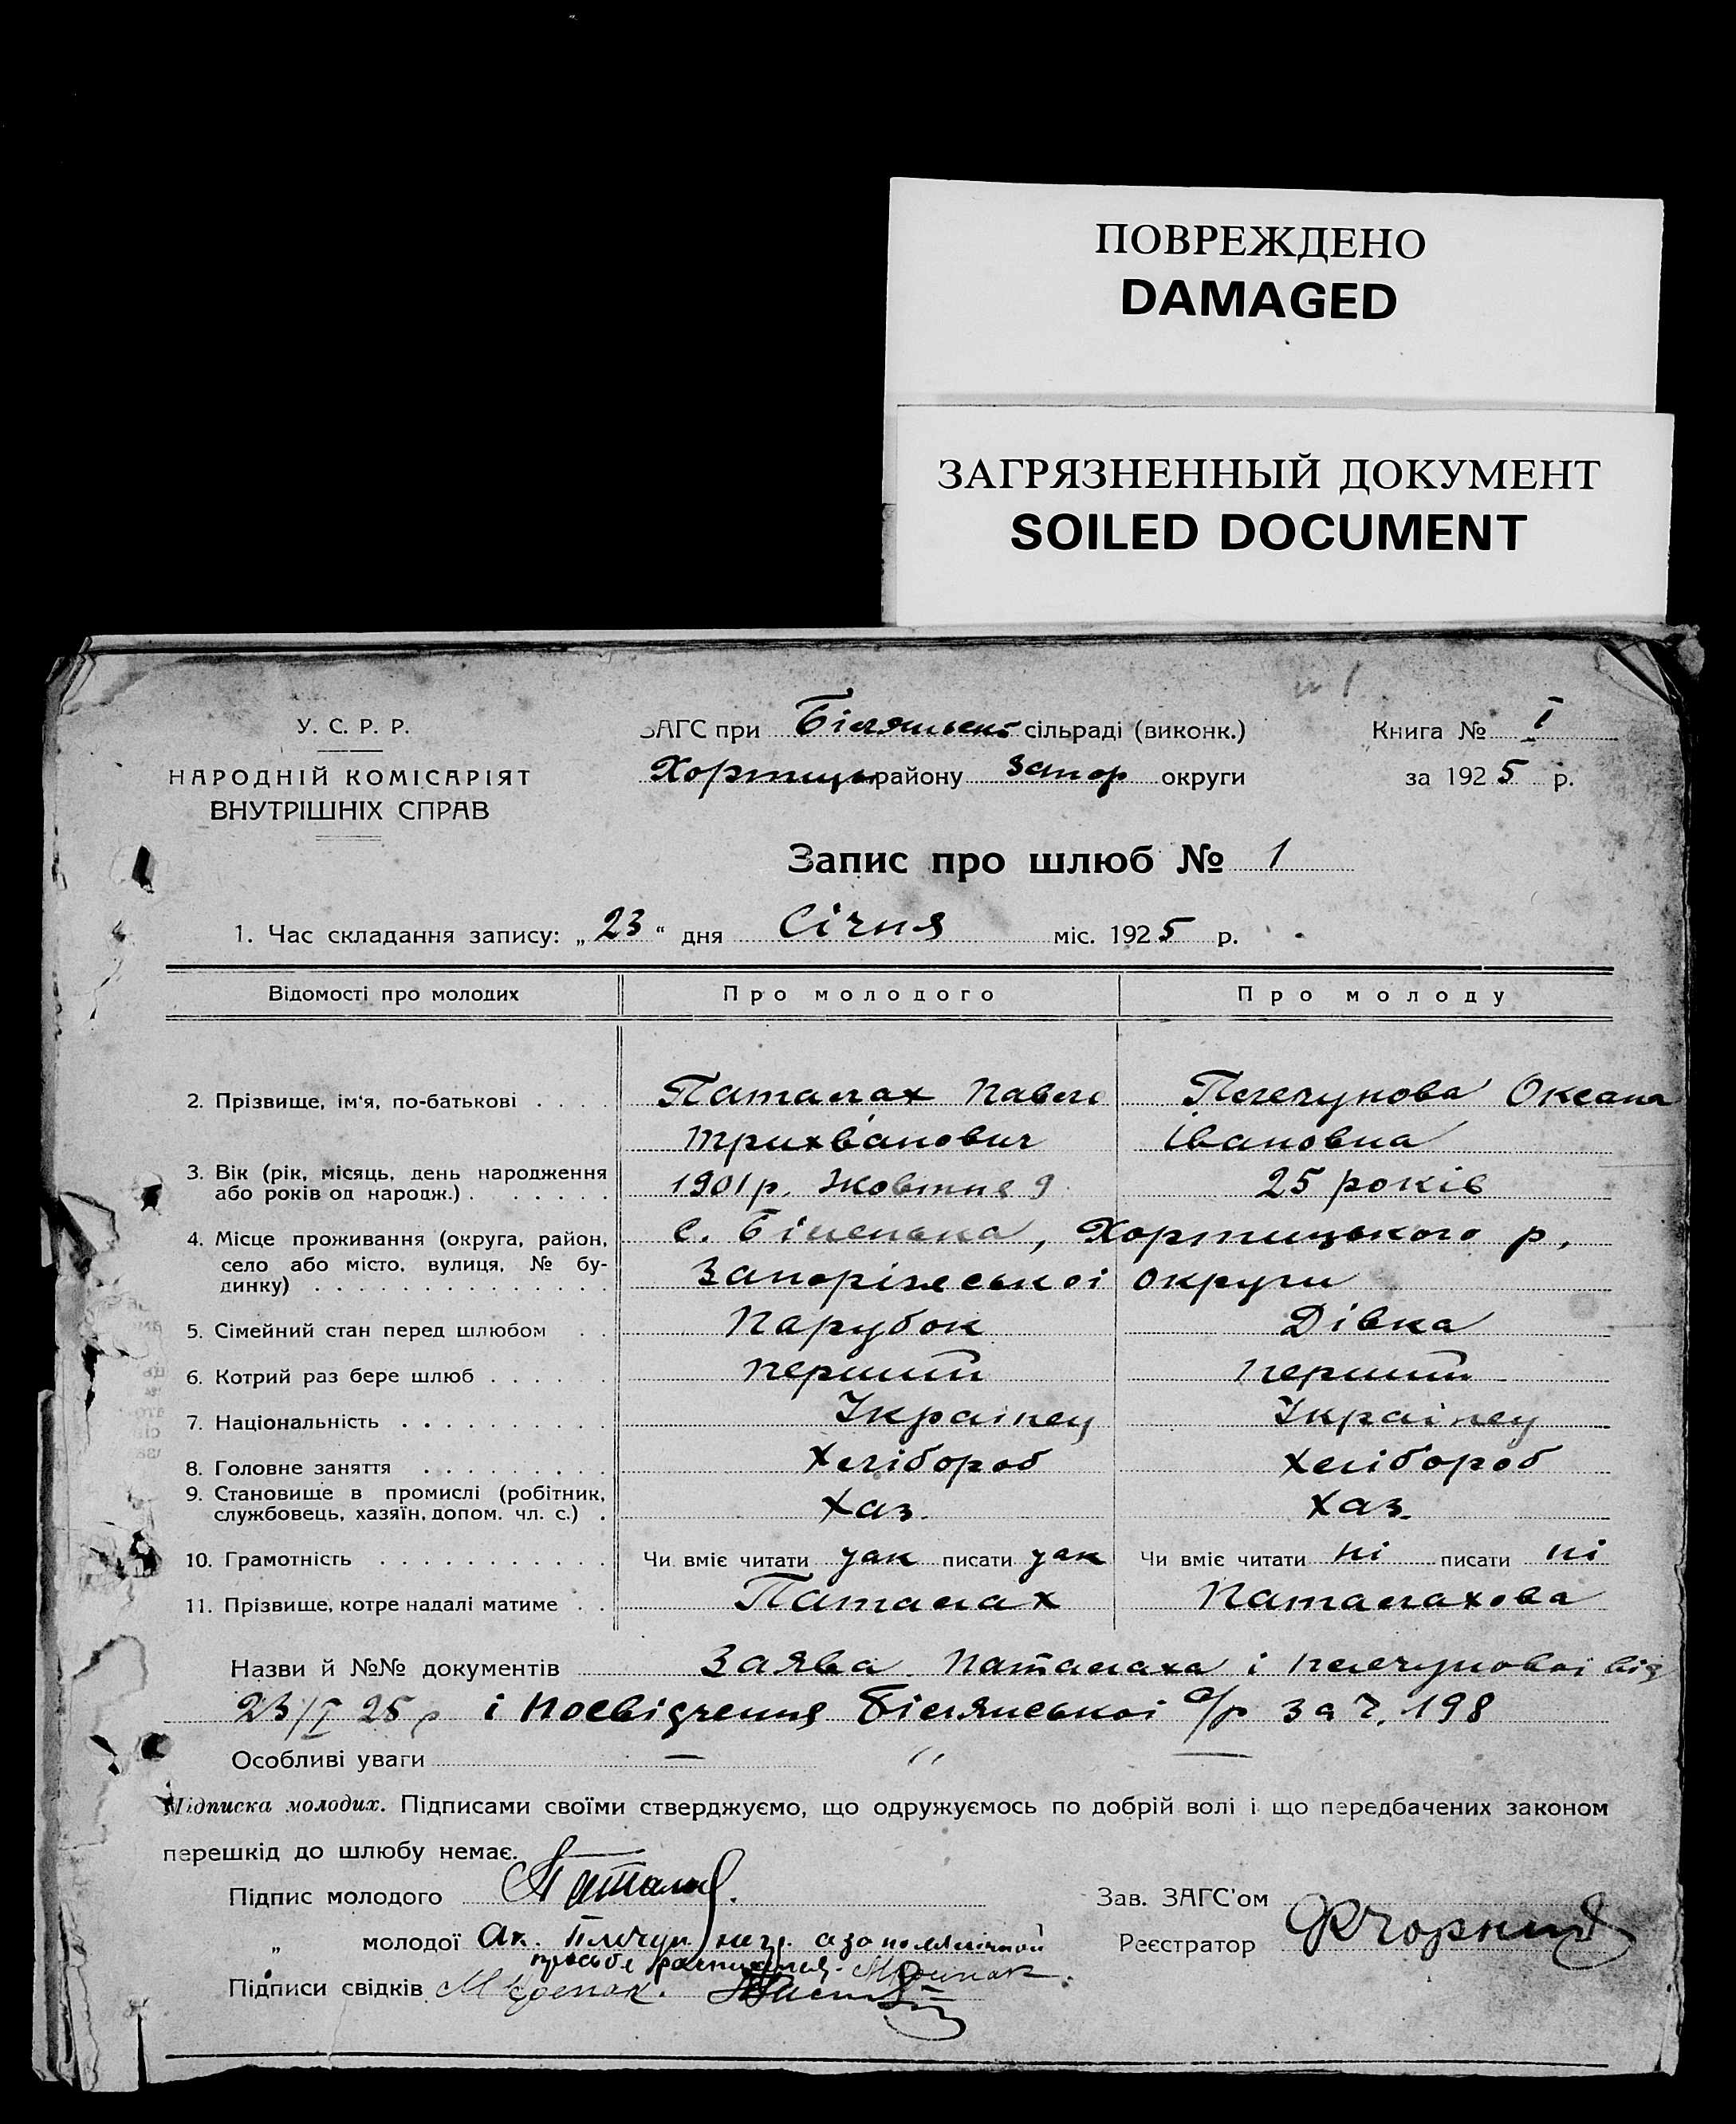 ПОВРЕЖДЕНО
DAMAGED
ЗАГРЯЗНЕННЫЙ ДОКУМЕНТ
SOILED DOCUMENT
У. С. Р. Р.
НАРОДНІЙ КОМІСАРІЯТ
ВНУТРІШНІХ СПРАВ
ЗАГС при Білянськ сільраді (виконк.)
Хортиць району Запор округи
Книга № I
за 1925 р.
Запис про шлюб № 1
1. Час складання запису: „23“ дня Січня міс. 1925 р.
Відомості про молодих Про молодого Про молоду
2. Прізвище, ім'я, по-батькові Паталах Павло Пелечунова Оксана
Трихванович Івановна
3. Вік (рік, місяць, день народження або років од народж.) 1901 р. Жовтня 9 25 років
4. Місце проживання (округа, район, с. Біленька, Хортицького р,
село або місто, вулиця, № будинку) Запоріжської округи
5. Сімейний стан перед шлюбом Парубок Дівка
6. Котрий раз бере шлюб перший перший
7. Національність Українец Українец
8. Головне заняття Хлібороб Хлібороб
9. Становище в промислі (робітник, службовець, хазяїн, допом. чл. с.) Хаз. Хаз.
10. Грамотність Чи вміє читати так писати так Чи вміє читати ні писати ні
11. Прізвище, котре надалі матиме Паталах Паталахова
Назви й №№ документів Заява Паталаха і Пелечунової від
23/I 25 р і Посвідчення Білянської с/р за ч. 198
Особливі уваги — " —
Підписка молодих. Підписами своїми стверджуємо, що одружуємось по добрій волі і що передбачених законом
перешкід до шлюбу немає.
Підпис молодого Патала
Зав. ЗАГС'ом
„ молодої
Реєстратор Чорний
Підписи свідків